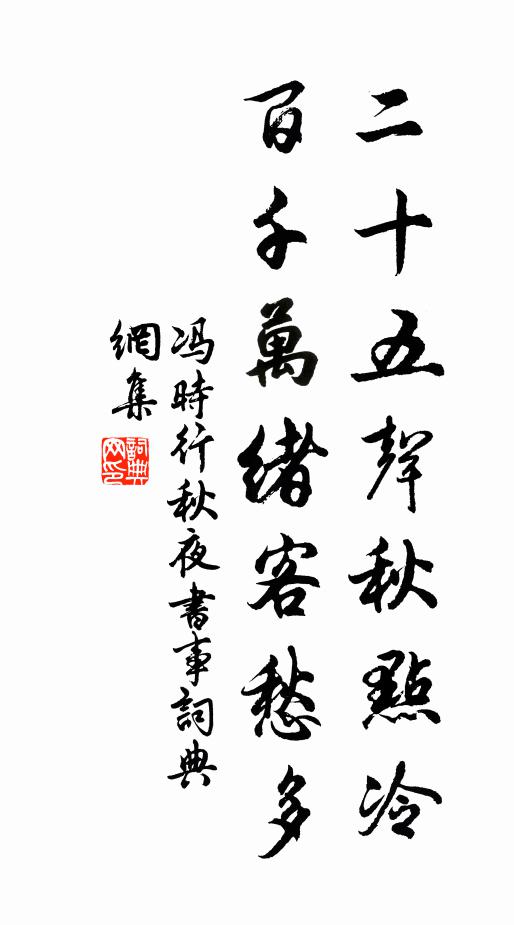 二十五聲秋點冷
百千萬緒客愁多
冯時行秋夜書事詞典
網集
詞典網印